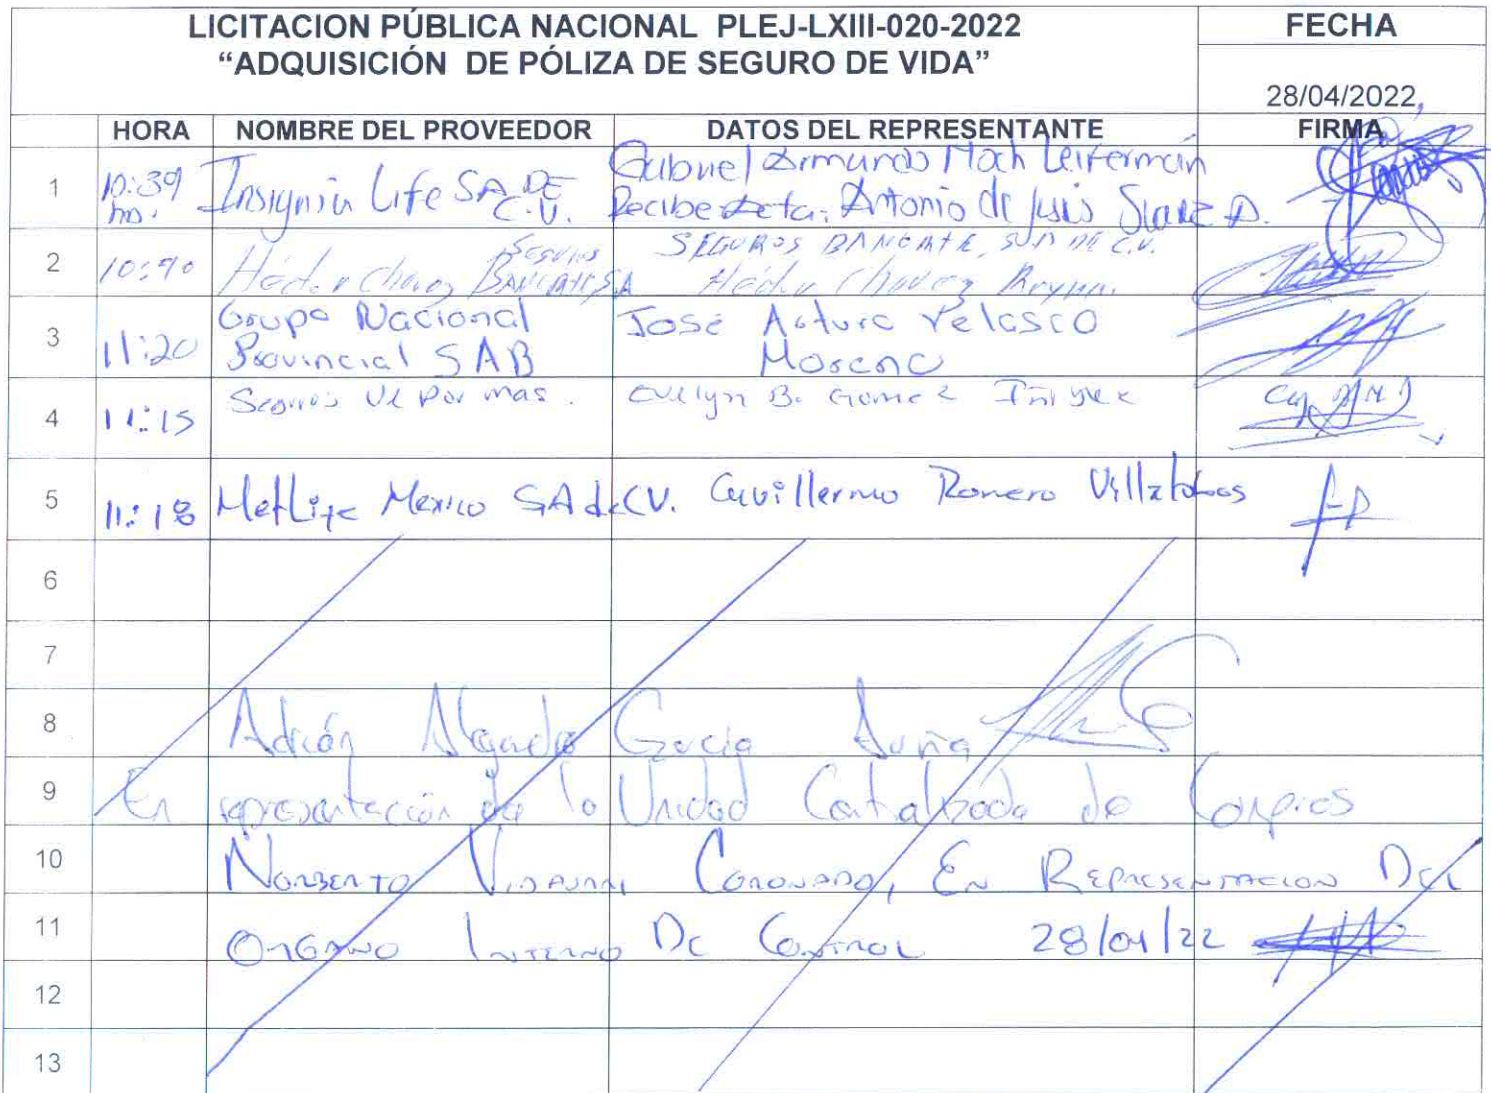 LICITACION PÚBLICA NACIONAL PLEJ-LXIII-020-2022
“ADQUISICIÓN DE PÓLIZA DE SEGURO DE VIDA”
FECHA
28/04/2022
HORA NOMBRE DEL PROVEEDOR DATOS DEL REPRESENTANTE FIRMA
1 10:39 hrs. Insignia Life SA DE C.V. Gabriel Armando Moch Leiferman
Recibe Acta: Antonio de Jesús
2 Héctor Chavez Seguros Banorte SA SEGUROS BANORTE, DE C.V.
Héctor Chavez
3 11:20 Grupo Nacional Provincial SAB José Arturo Velasco Moreno
4 11:15 Seguros Ve por mas. Evelyn B. Gomez Iñiguez
5 11:18 MetLife Mexico SA de CV. Guillermo Romero Villalobos
6
7
8 Adrián Alejandro García
9 En representación de la Unidad Centralizada de Compras
10 NORBERTO VIDAURRI CORONADO, EN REPRESENTACION DEL
11 ORGANO INTERNO DE CONTROL 28/04/22
12
13